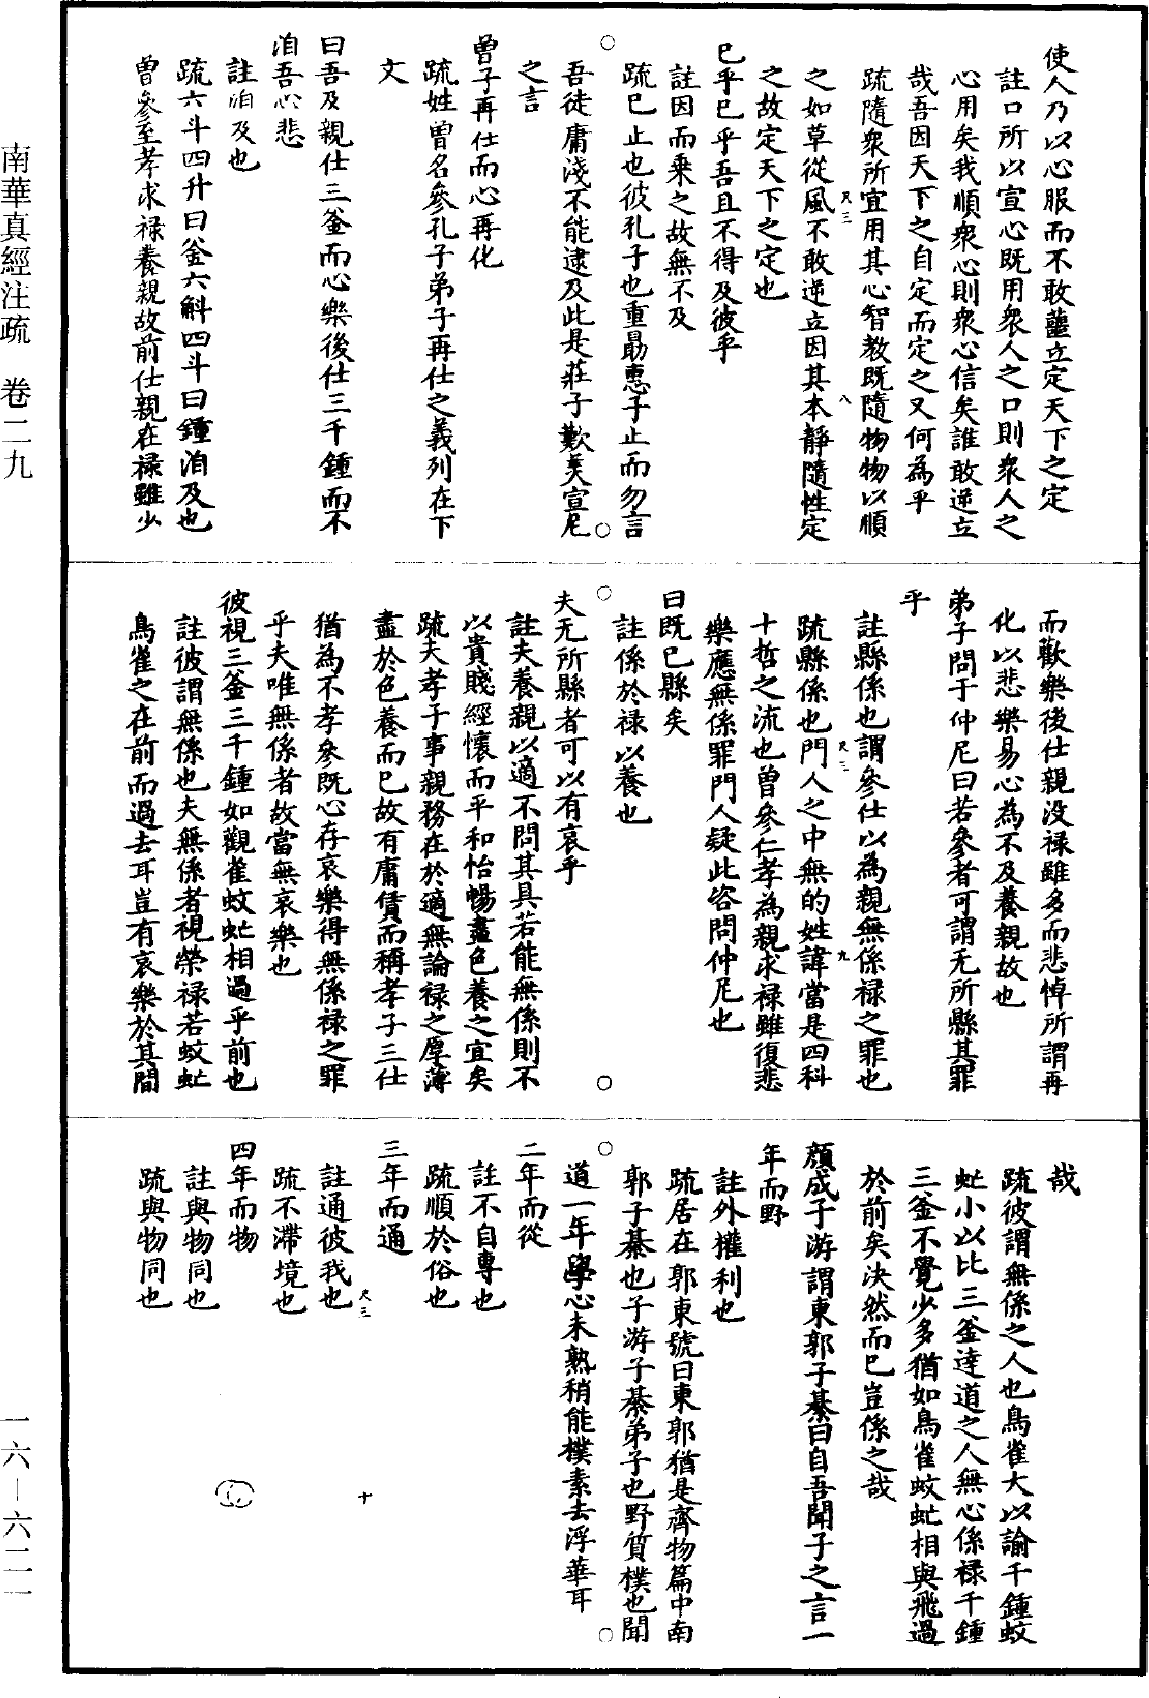 使人乃以心服而不敢蘁立定天下之定
註口所以宣心既用衆人之口則衆人之
心用矣我順衆心則衆心信矣誰敢逆立
哉吾因天下之自定而定之又何為乎
疏隨衆所宜用其心智教既隨物物以順
之如草從風不敢逆立因其本靜隨性定
之故定天下之定也
已乎已乎吾且不得及彼乎
註因而乗之故無不及
疏已止也彼孔子也重勗惠子止而勿言
吾徒庸淺不能逮及此是莊子歎美宣尼
之言
曾子再仕而心再化
疏姓曾名參孔子弟子再仕之義列在下
文
曰吾及親仕三釜而心樂後仕三千鍾而不
洎吾心悲
註洎及也
疏六斗四升曰釜六斛四斗曰鍾洎及也
曾參至孝求禄養親故前仕親在禄雖少
而歡樂後仕親没禄雖多而悲悼所謂再
化以悲樂易心為不及養親故也
弟子問于仲尼曰若參者可謂无所縣其罪
乎
註縣係也謂參仕以為親無係禄之罪也
疏縣係也門人之中無的姓諱當是四科
十哲之流也曾參仁孝為親求禄雖復悲
樂應無係罪門人疑此咨問仲尼也
曰既已縣矣
註係於禄以養也
夫无所縣者可以有哀乎
註夫養親以適不問其具若能無係則不
以貴賤經懷而平和怡暢盡色養之宜矣
疏夫孝子事親務在於適無論禄之厚薄
盡於色養而已故有庸賃而稱孝子三仕
猶為不孝參既心存哀樂得無係禄之罪
乎夫唯無係者故當無哀樂也
彼視三釜三千鍾如觀雀蚊虻相過乎前也
註彼謂無係也夫無係者視榮禄若蚊虻
鳥雀之在前而過去耳豈有哀樂於其間
哉
疏彼謂無係之人也鳥雀大以諭千鍾蚊
虻小以比三釜達道之人無心係禄千鍾
三釜不覺少多猶如鳥雀蚊虻相與飛過
於前矣決然而已豈係之哉
顔成子游謂東郭子綦曰自吾聞子之言一
年而野
註外權利也
疏居在郭東號曰東郭猶是齊物篇中南
郭子綦也子游子綦弟子也野質樸也聞
道一年學心未熟稍能樸素去浮華耳
二年而從
註不自專也
疏順於俗也
三年而通
註通彼我也
疏不滯境也
四年而物
註與物同也
疏與物同也
尺三
八
尺三
九
尺三
十
南華真經注疏 卷二九
一六—六二一